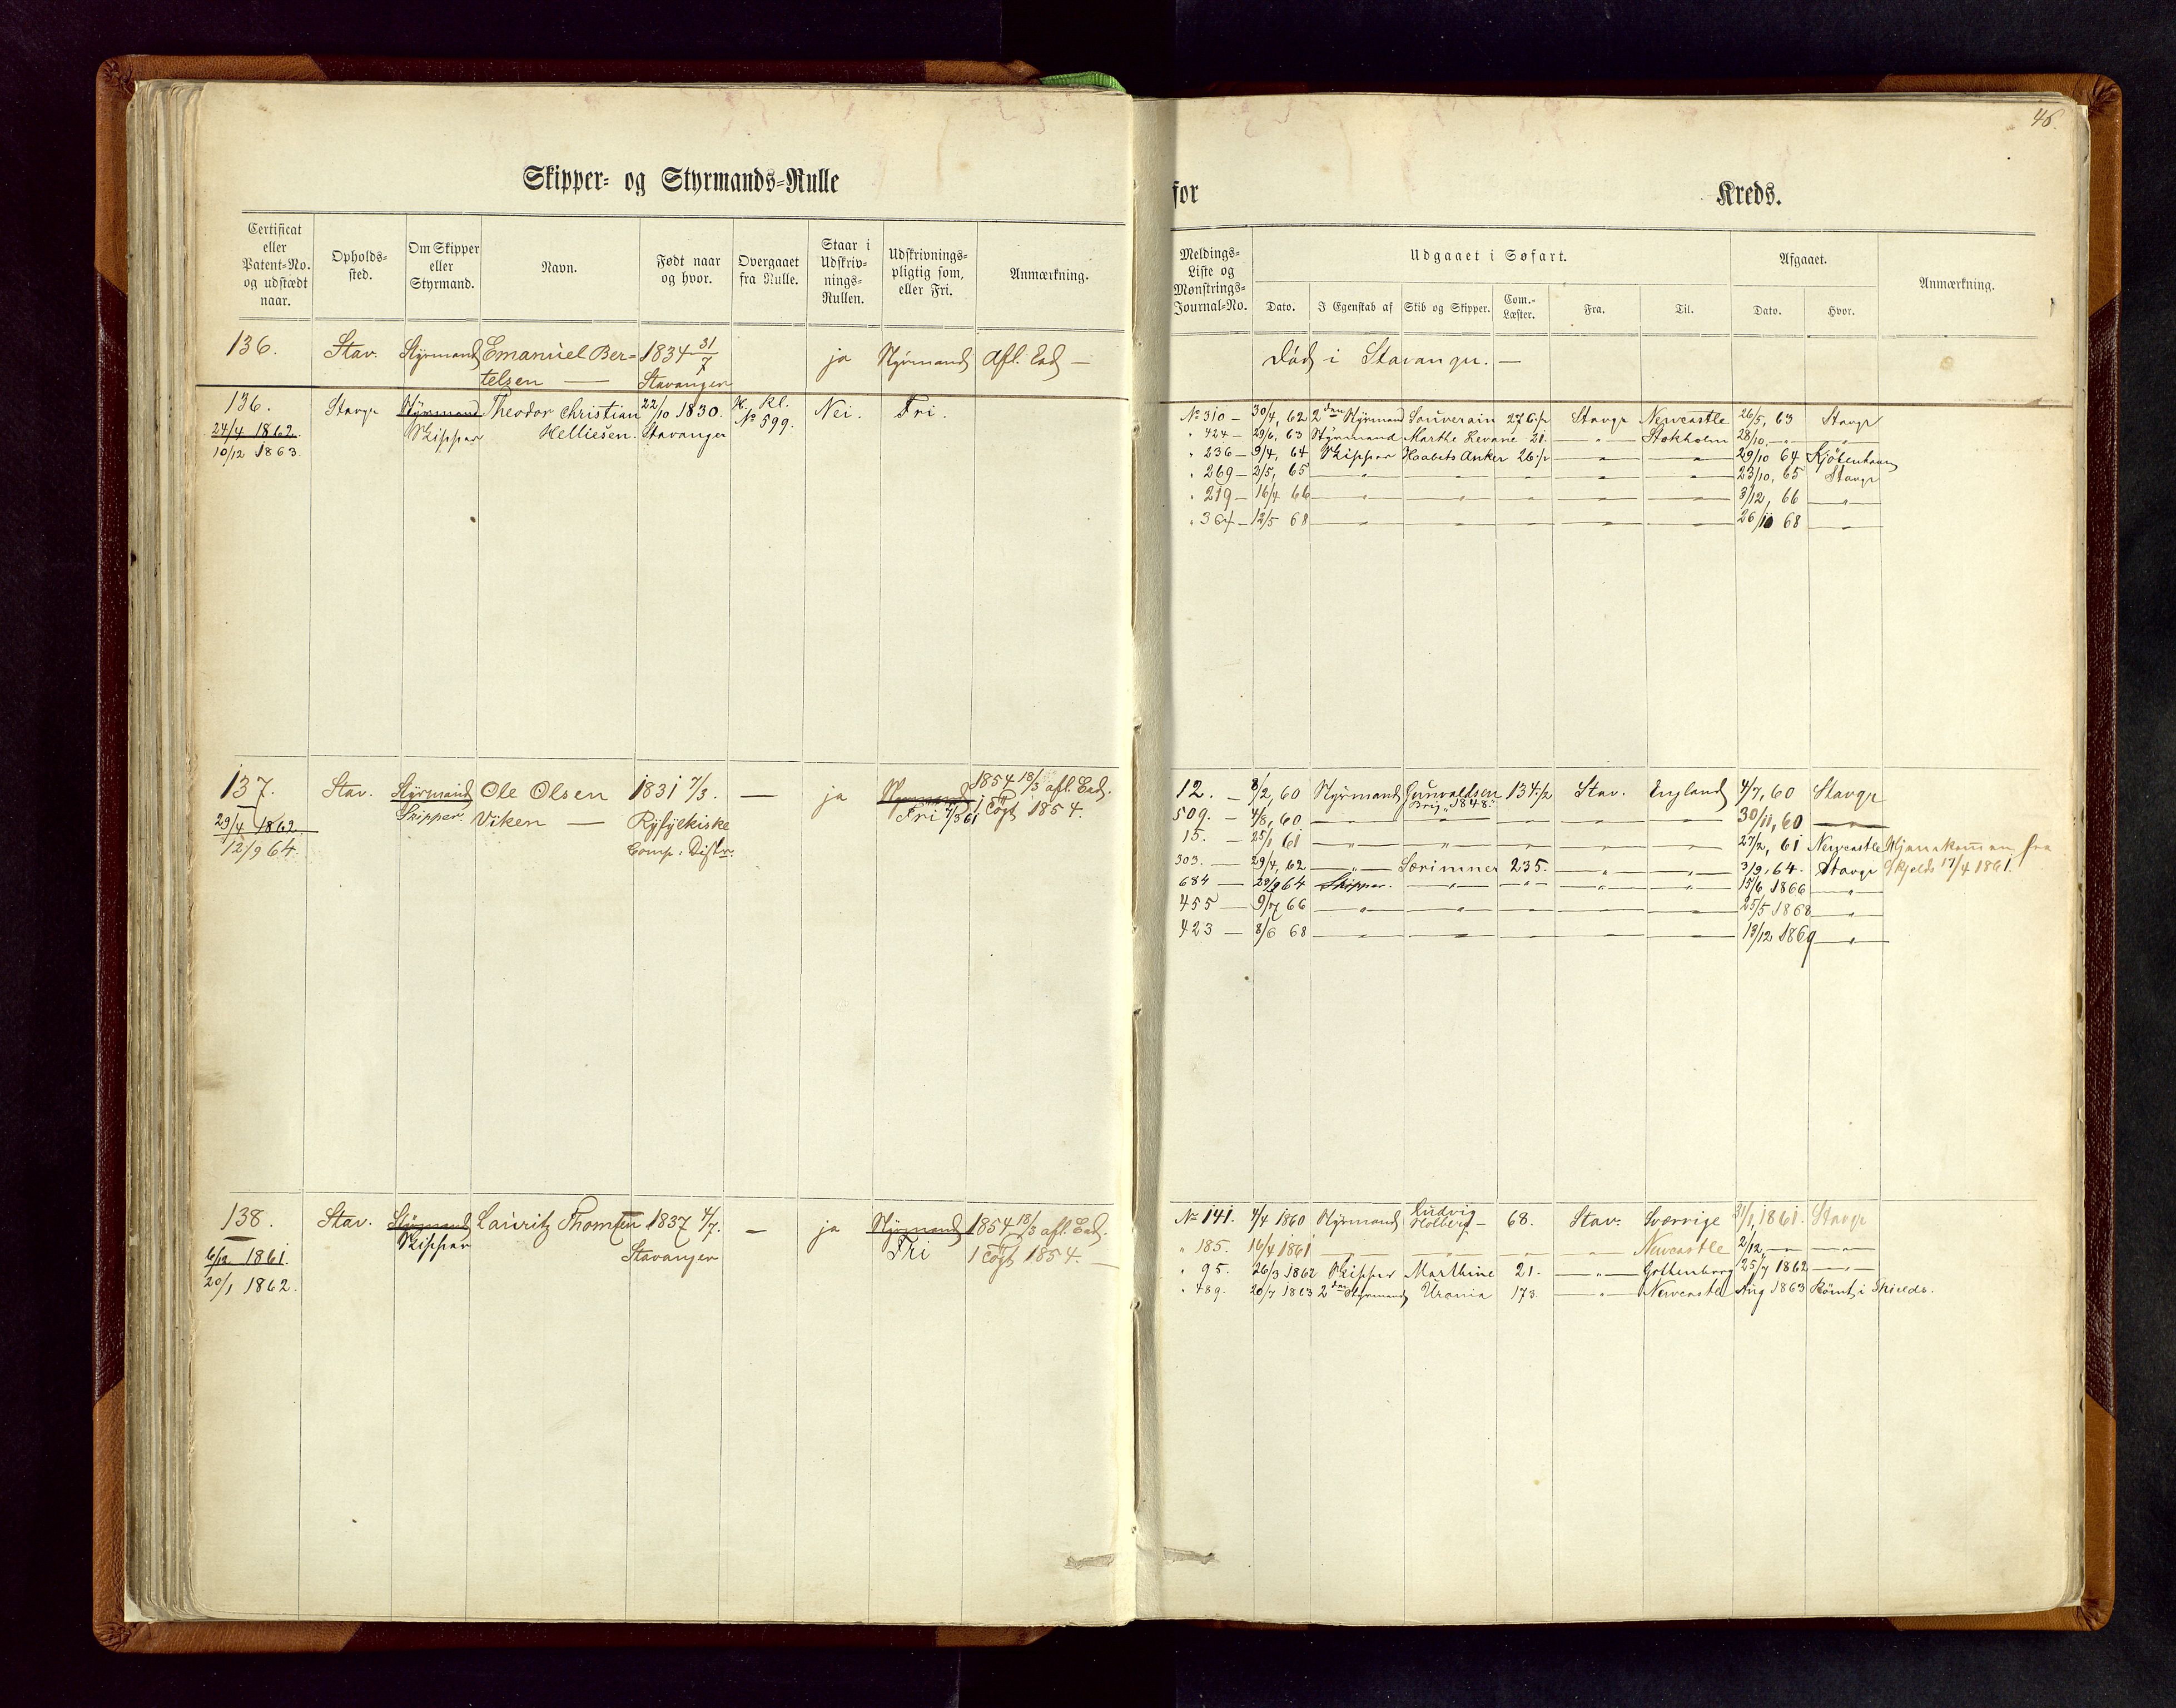 46.
Skipper- og Styrmands-Rulle
for
Kreds.
Certificat eller Patent-No. og udstædt naar.
Opholds-sted.
Om Skipper eller Styrmand.
Navn.
Født naar og hvor.
Overgaaet fra Rulle.
Staar i Udskriv-nings-Rullen.
Udskrivnings-pligtig som, eller Fri.
Anmærkning.
Meldings-Liste og Mønstrings-Journal-No.
Udgaaet i Søfart.
Dato.
I Egenskab af
Skib og Skipper.
Com.-Læster.
Fra.
Til.
Afgaaet.
Dato.
Hvor.
Anmærkning.
136. Stav. Styrmand Emanuel Ber- 1834 31/7 ja Styrmand Afl. Ed —
telsen — Stavanger
Død i Stavanger. —
136. Stavgr Styrmand Theodor Christian 22/10 1830. H. kl. Nei. Fri.
24/4 1862. Skipper Helliesen. Stavanger No 599.
10/12 1863.
No 310 — 30/4, 62 2den Styrmand Souverain 276 1/2 Stavgr Newcastle 26/5, 63 Stavgr
" 424 — 29/6, 63 Styrmand Marthe Levane 21. — " — Stokholm 28/10 — " — — " —
" 236 — 9/4, 64 Skipper Haabets Anker 26 1/2 — " — — " — 29/10 64 Kjöbenhavn
" 269 — 2/5, 65 — " — — " — — " — — " — — " — 23/10, 65 Stavgr
" 219 — 16/4 66 — " — — " — — " — — " — — " — 3/12, 66 — " —
" 364 — 12/5 68 — " — — " — — " — — " — — " — 26/10 68 — " —
137. Stav. Styrmand Ole Olsen 1831 7/3. — ja Styrmand 1854 18/3 afl. Ed.
29/4 1862. Skipper Viken — Ryfylkiske Fri 4/3 61 1 Togt 1854.
12/9 64. Comp: Distr.
12. — 8/2, 60 Styrmand Gunvaldsen 134 1/2 Stav. England 4/7, 60 Stavgr
Brig "1848"
509. — 4/8, 60 — " — — " — — " — — " — — " — 30/11, 60 — " —
15. — 25/1 61 — " — — " — — " — — " — — " — 27/2, 61 Newcastle Hjemkommen fra
303. — 29/4, 62 — " — Særimner 235. — " — — " — 3/9, 64. Stavgr Skjelds 17/4 1861.
684 — 29/9 64 Skipper. — " — — " — — " — — " — 15/6 1866 — " —
455 — 9/7 66 — " — — " — — " — — " — — " — 25/5 1868 — " —
423 — 8/6 68 — " — — " — — " — — " — — " — 13/12 1869 — " —
138. Stav. Styrmand Lauritz Thomsen 1837 4/7. — ja Styrmand 1854 18/3 afl. Ed.
6/12 1861. Skipper Stavanger Fri 1 Togt 1854. —
20/1 1862.
No 141. 4/4 1860 Styrmand Ludvig Holberg — 68. Stav. Sverrige 31/1, 1861. Stavgr
" 185. 16/4 1861 — " — — " — — " — — " — Newcastle 2/12, — " — — " —
" 95. 26/3 1862 Skipper Marthine 21. — " — Gothenborg 25/7 1862 — " —
" 489. 20/7 1863 2den Styrmand Urania 173. — " — Newcastle Aug 1863 Römt i Shields.